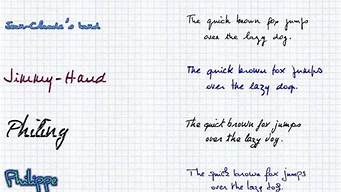 Jean-Claude's hand
The quick brown fox jumps
over the lazy dog.
Jimmy-Hand
The quick brown fox jumps
over the lazy dog.
Philing
The quick brown fox jumps
over the lazy dog.
Philippe
The quick brown fox jumps
over the lazy dog.